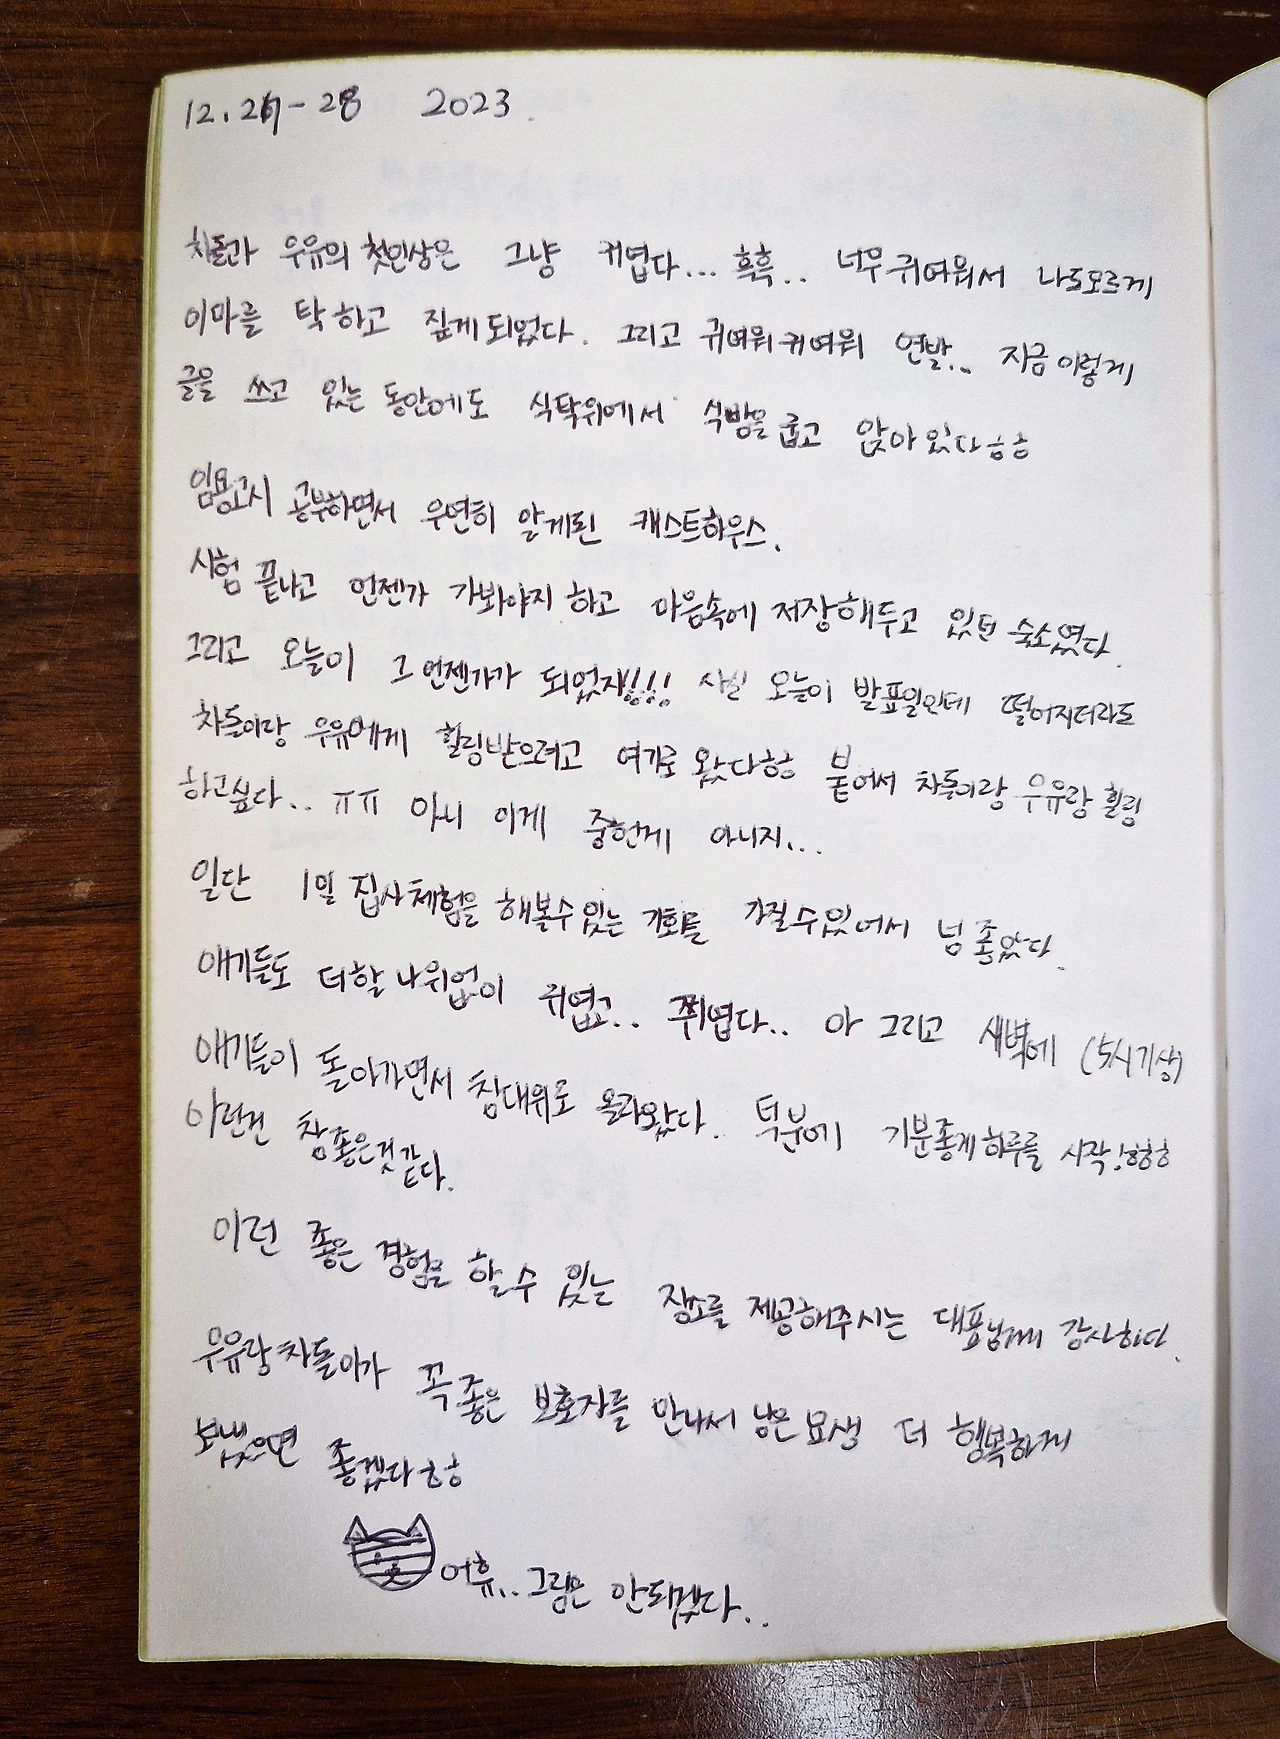 12.27-28 2023.
차돌과 우유의 첫인상은 그냥 귀엽다... 흑흑.. 너무 귀여워서 나도모르게
이마를 탁 하고 짚게 되었다. 그리고 귀여워 귀여워 연발... 지금 이렇게
글을 쓰고 있는 동안에도 식탁위에서 식빵을 굽고 앉아 있다 ㅎㅎ
임용고시 공부하면서 우연히 알게된 캐스트하우스.
시험 끝나고 언젠가 가봐야지 하고 마음속에 저장해두고 있던 숙소였다.
그리고 오늘이 그 언젠가가 되었지!!! 사실 오늘이 발표일인데 떨어지더라도
차돌이랑 우유에게 힐링받으려고 여기로 왔다ㅎㅎ 붙어서 차돌이랑 우유랑 힐링
하고싶다.. ㅠㅠ 아니 이게 중헌게 아니지...
일단 1일 집사체험을 해볼수 있는 기회를 가질수있어서 넘 좋았다.
애기들도 더할 나위없이 귀엽고.. 쮜엽다.. 아 그리고 새벽에 (5시기상)
애기들이 돌아가면서 침대위로 올라왔다. 덕분에 기분좋게 하루를 시작!ㅎㅎㅎ
이런건 참 좋은것 같다.
이런 좋은 경험을 할 수 있는 장소를 제공해주시는 대표님께 감사하다.
우유랑 차돌이가 꼭 좋은 보호자를 만나서 남은 묘생 더 행복하게
보냈으면 좋겠다 ㅎㅎ
어휴.. 그림은 안되겠다..